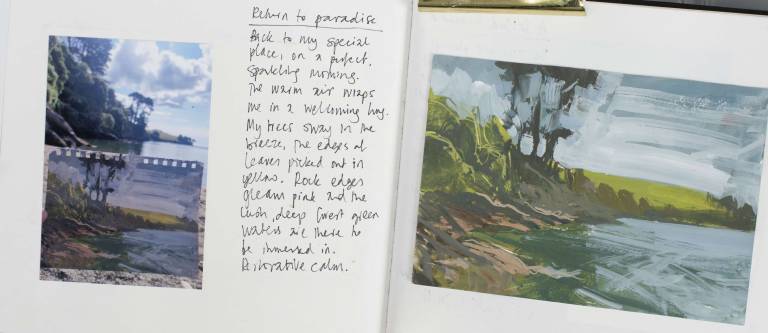 Return to paradise
Back to my special
place, on a perfect,
sparkling morning.
The warm air wraps
me in a welcoming hug.
My trees sway in the
breeze, the edges of
leaves picked out in
yellow. Rock edges
gleam pink and the
lush, deep forest green
waters are there to
be immersed in.
Restorative calm.